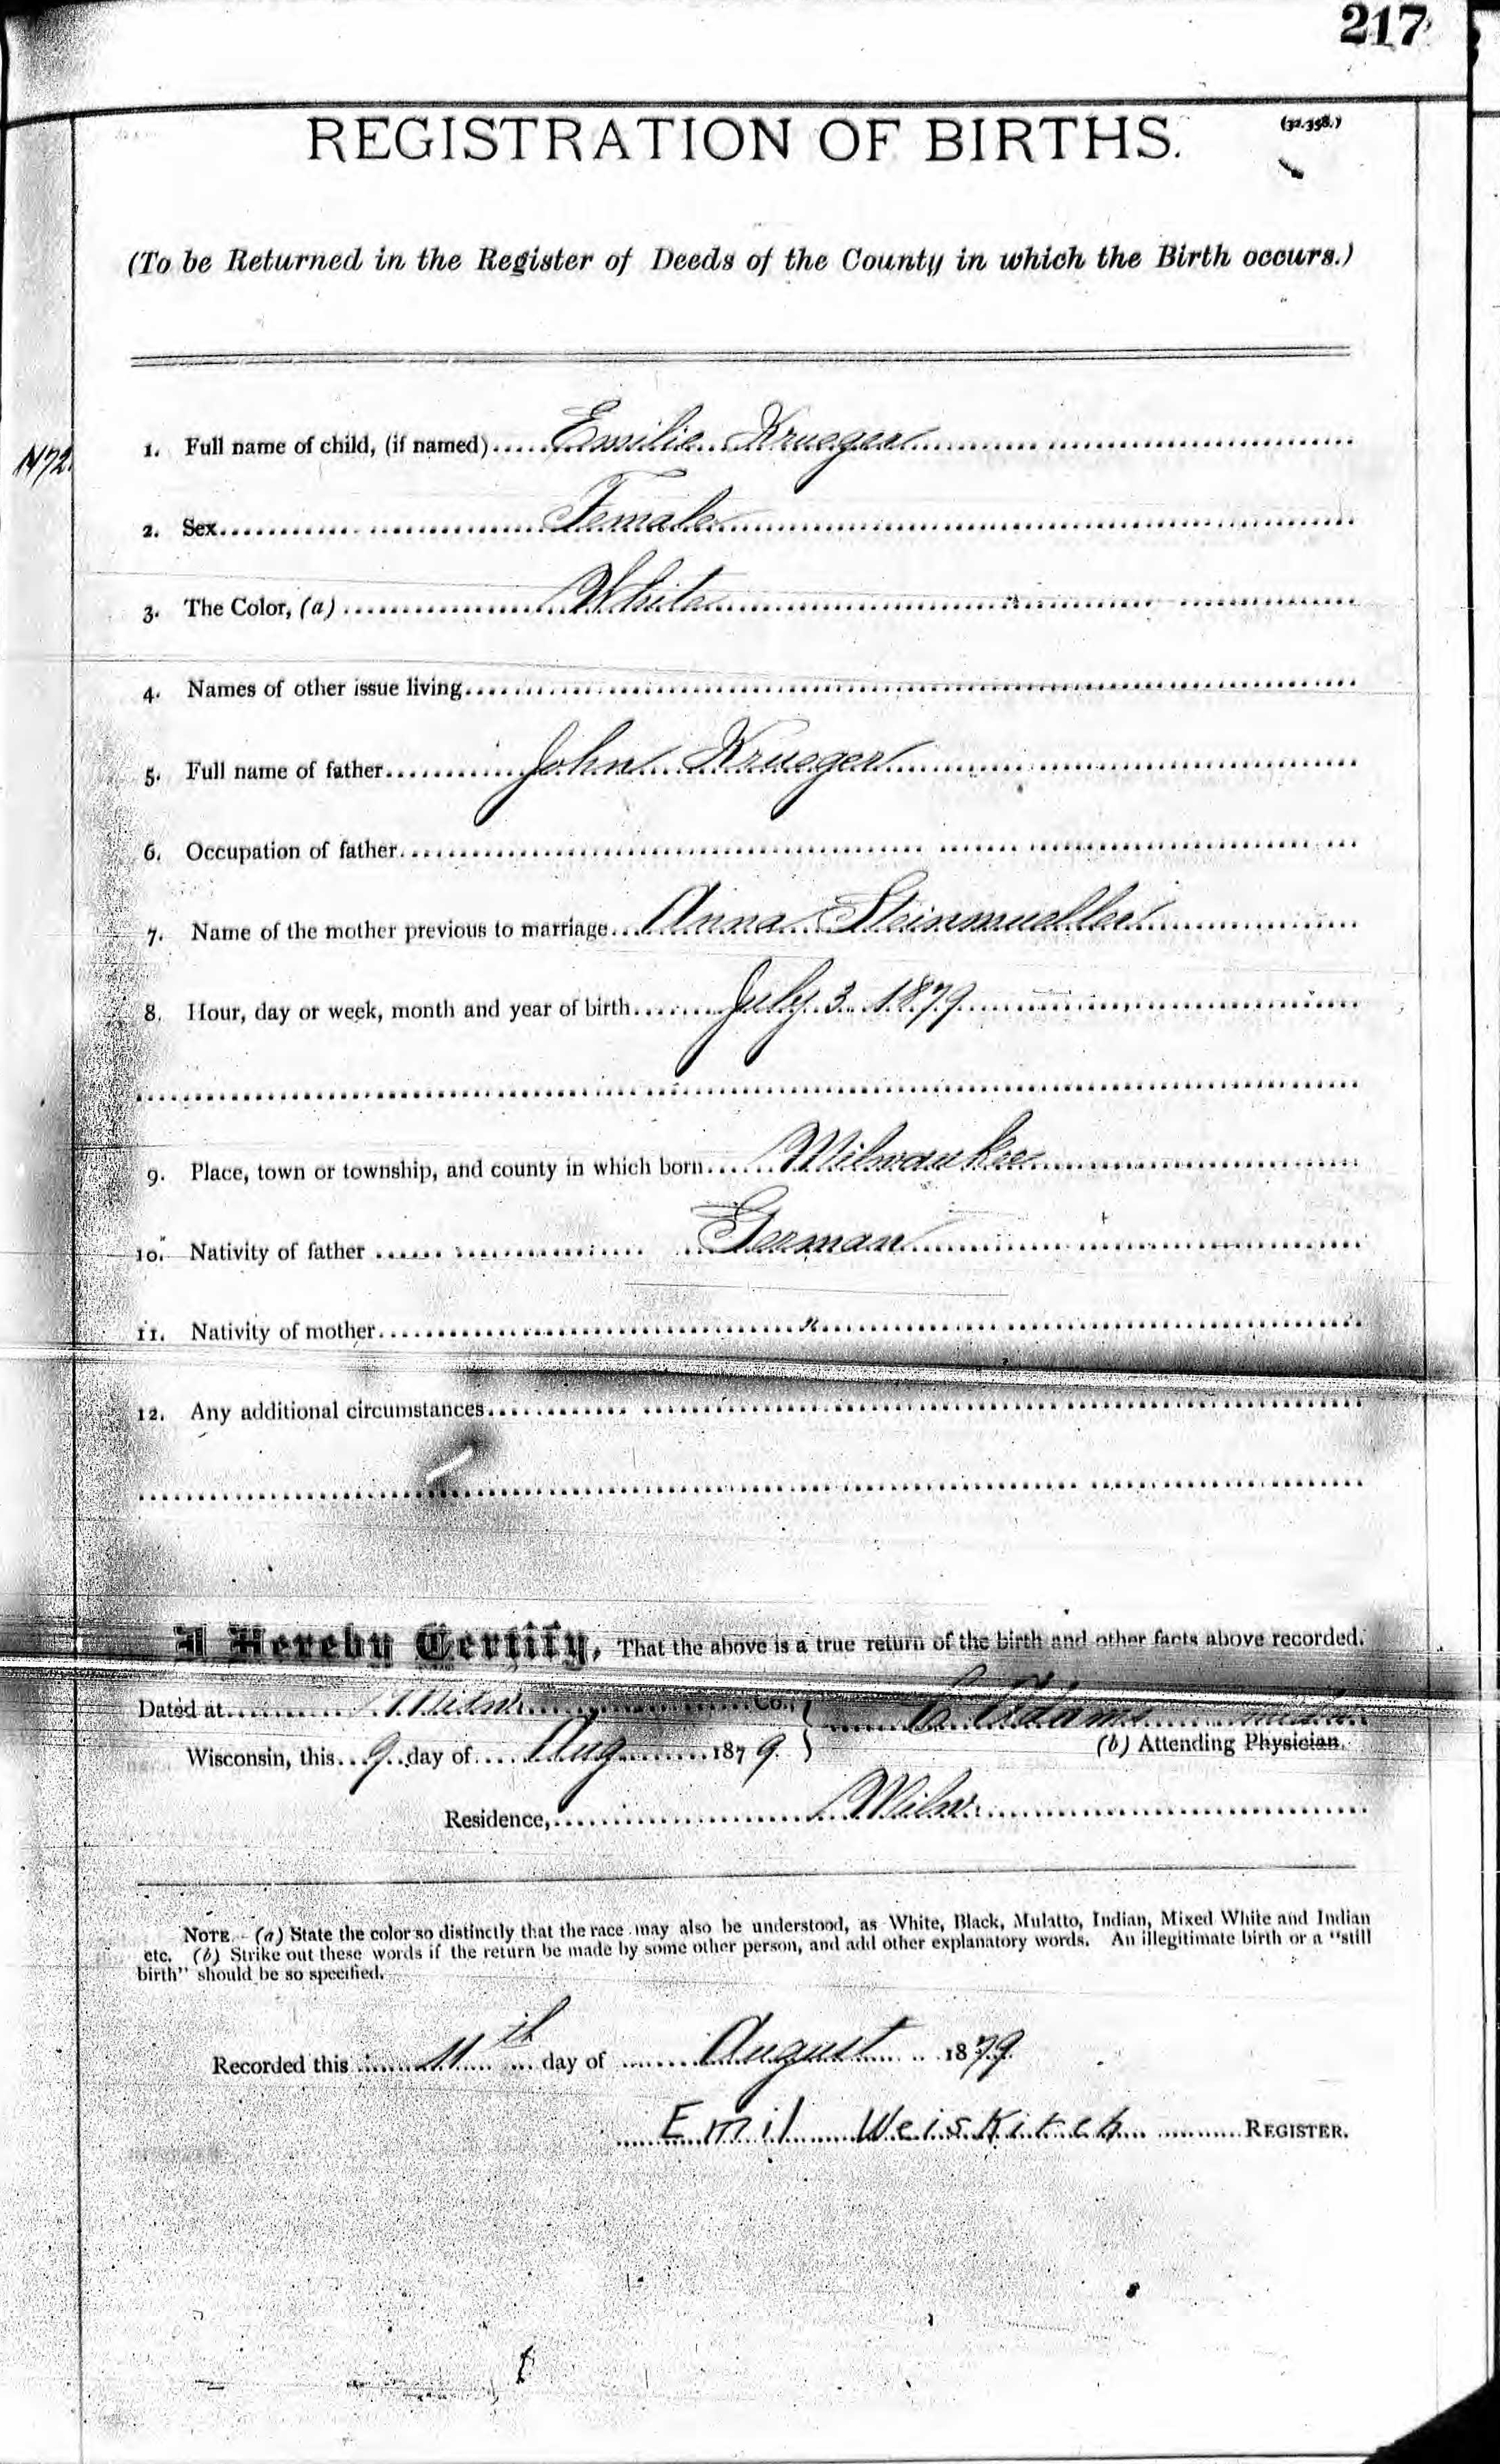 217
REGISTRATION OF BIRTHS.
(32.358.)
(To be Returned in the Register of Deeds of the County in which the Birth occurs.)
1472
1. Full name of child, (if named) Emilie Krueger
2. Sex Female
3. The Color, (a) White
4. Names of other issue living
5. Full name of father John Krueger
6. Occupation of father
7. Name of the mother previous to marriage Anna Steinmueller
8. Hour, day or week, month and year of birth July 3 1879
9. Place, town or township, and county in which born Milwaukee
10. Nativity of father German
11. Nativity of mother "
12. Any additional circumstances
I Hereby Certify, That the above is a true return of the birth and other facts above recorded.
Dated at Milw. Co., Adams
Wisconsin, this 9 day of Aug 1879 (b) Attending Physician.
Residence, Milw.
NOTE.- (a) State the color so distinctly that the race may also be understood, as White, Black, Mulatto, Indian, Mixed White and Indian
etc. (b) Strike out these words if the return be made by some other person, and add other explanatory words. An illegitimate birth or a "still
birth" should be so specified.
Recorded this 11th day of August 1879
Emil Weiskirch REGISTER.